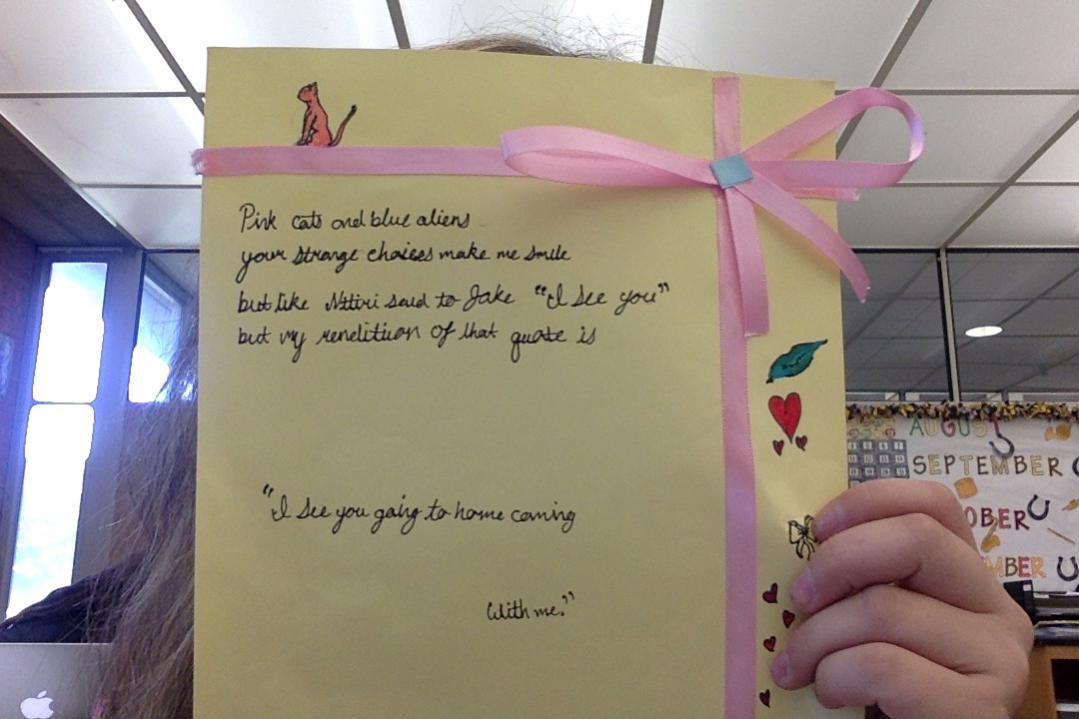 Pink cats and blue aliens
your strange choices make me smile
but like Nitiri said to Jake "I see you"
but my renditiion of that quote is
"I see you going to home coming
With me."
AUGUST
SEPTEMBER
OBER
MBER